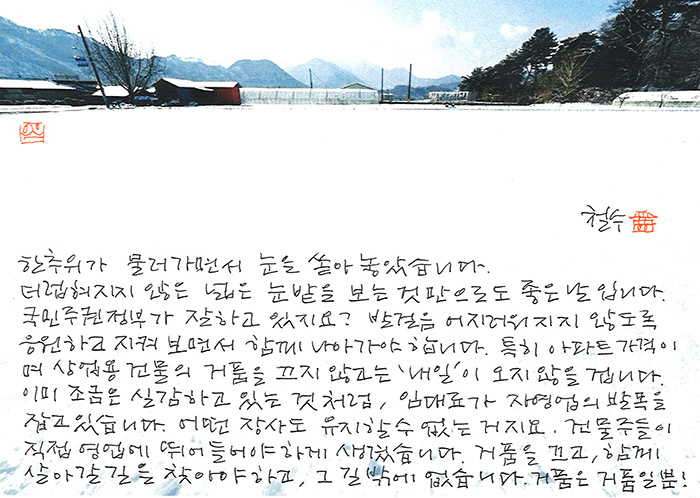 철수
한추위가 물러가면서 눈을 쏟아 놓았습니다.
더럽혀지지 않은 넓은 눈밭을 보는 것만으로도 좋은 날입니다.
국민주권정부가 잘하고 있지요? 발걸음 어지러워지지 않도록
응원하고 지켜 보면서 함께 나아가야 합니다. 특히 아파트가격이
며 상업용 건물의 거품을 끄지 않고는 '내일'이 오지 않을 겁니다.
이미 조금은 실감하고 있는 것처럼, 임대료가 자영업의 발목을
잡고있습니다. 어떤 장사도 유지할 수 없는 거지요. 건물주들이
직접 영업에 뛰어들어야하게 생겼습니다. 거품을 끄고, 함께
살아갈길을 찾아야하고, 그 길밖에 없습니다. 거품은 거품일뿐!